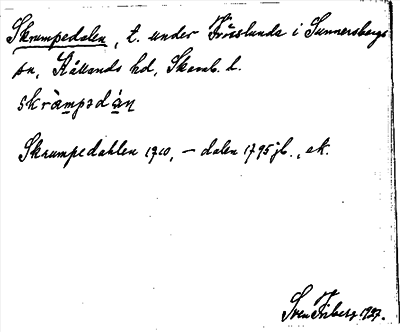 Skrumpedalen, t. under Fröslunda i Sunnersbergs
sn, Kållands hd, Skarab. l.
skràmpədá̱n
Skrumpedahlen 1710, – dalen 1795 jb., ek.
Sven Friberg 1927.